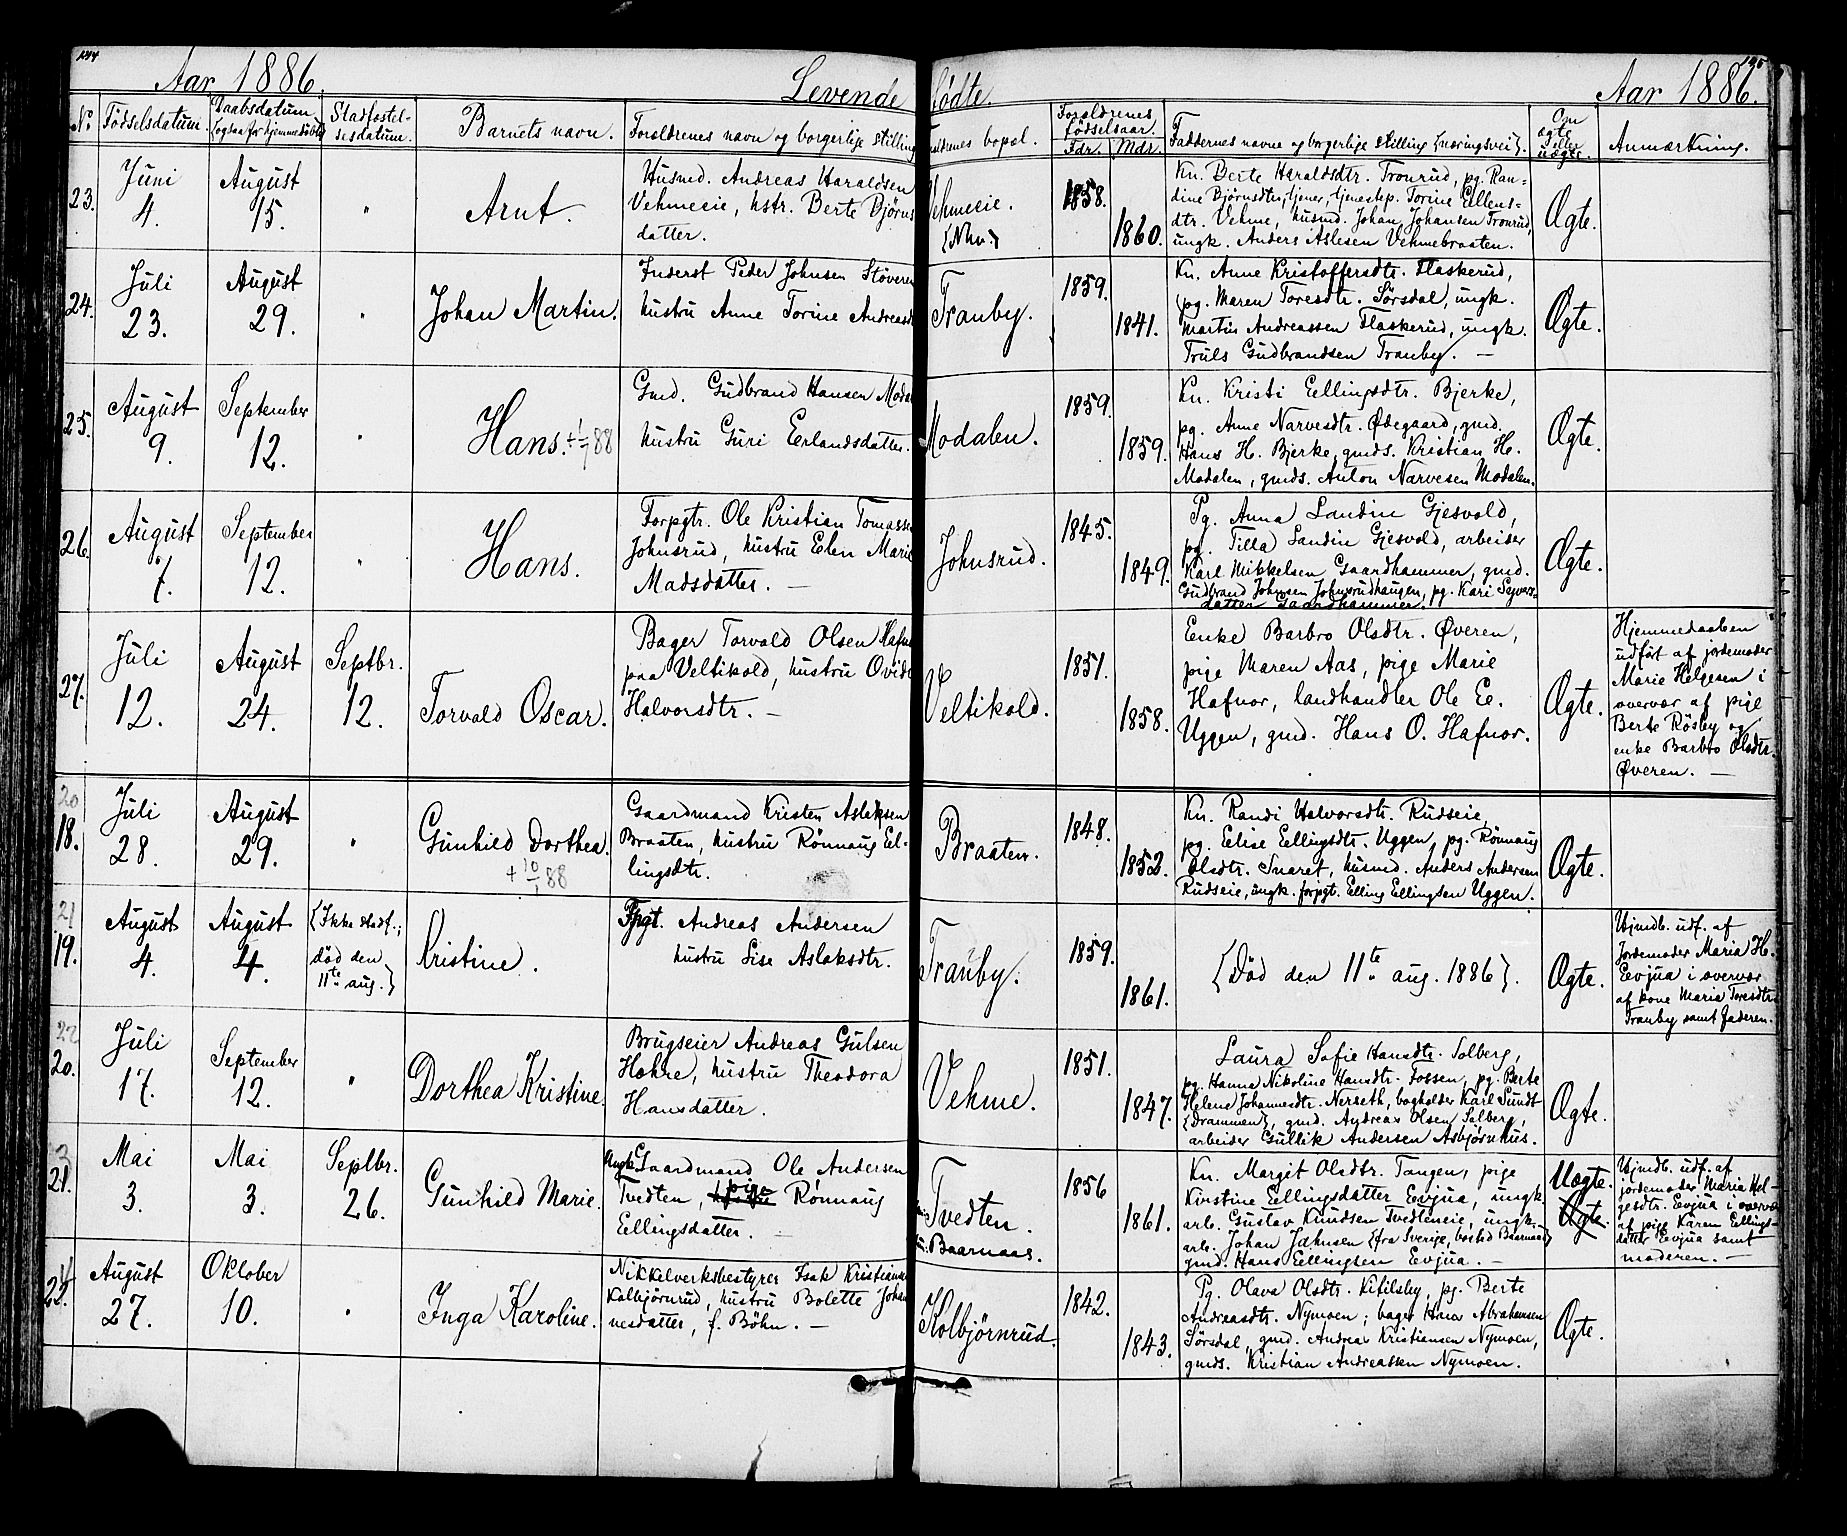 144
Aar 1886.
Levende
fødte.
Aar 1886.
No
Fødselsdatum.
Daabsdatum
(ogsaa for hjemmedøbte)
Stadfæstel-
sesdatum.
Barnets navn.
Forældrenes navn og borgerlige stilling
Forældrenes bopæl.
Forældrenes
fødselsaar.
Fdr. Mdr.
Faddernes navne og borgerlige stilling {næringsvei}.
Om
ægte
eller
uægte.
Anmærkning.
23.
Juni
4.
August
15.
"
Arnt.
Husmd. Andreas Haraldsen
Vehmeeie, hstr. Berte Bjørns
datter.
Vehmeeie.
{Nhv.}
1858.
1860.
Kn. Berte Haraldsdtr. Tronrud, pg. Ran=
dine Bjørnsdtr, tjener, tjenestep. Torine Ellens-
dtr. Vehme, husmd. Johan Johansen Tronrud,
ungk. Anders Aslesen Vehmebraaten.
Ægte.
24.
Juli
23.
August
29.
"
Johan Martin.
Inderst Peder Johnsen Støveren
hustru Anne Torine Andreasd
Tranby.
1859.
1841.
Kn. Anne Kristoffersdtr. Flaskerud,
pg. Maren Toresdtr. Sørsdal, ungk.
Martin Andreassen Flaskerud, ungk.
Truls Gudbrandsen Tranby. —
Ægte.
25.
August
9.
September
12.
"
Hans. + 1/7 88
Gmd. Gudbrand Hansen Moda
hustru Guri Eerlandsdatter.
Modalen.
1859.
1859.
Kn. Kristi Eellingsdtr. Bjerke,
pg. Anne Narvesdtr. Ødegaard, gmd.
Hans H. Bjerke, gmds. Kristian H.
Modalen, gmds. Anton Narvesen Modalen.
Ægte.
26.
August
7.
September
12.
"
Hans.
Forpgtr. Ole Kristian Tomassen
Johnsrud, hustru Elen Marie
Madsdatter. —
Johnsrud.
1845.
1849.
Pg. Anna Landin Gjesvold,
pg. Tilla Landin Gjesvold, arbeider
Karl Mikkelsen Gaardhammer, gmd.
Gudbrand Johnsen Johnsrudhaugen, pg. Kari Sejvers-
datter Gaardhammer.
Ægte.
27.
Juli
12.
August
24.
Septbr.
12.
Torvald Oscar.
Bager Torvald Olsen Hafn
paa Veltikold, hustru Ovid
Halvorsdtr. —
Veltikold.
1851.
1858.
Enke Barbro Olsdtr. Øveren,
pige Maren Aas, pige Marie
Hafnor, landhandler Ole Ee.
Uggen, gmd. Hans O. Hafnor.
Ægte.
Hjemmedaaben
udført af jordemoder
Marie Helgesen i
overvær af pige
Berte Røsby og
enke Barbro Olsdtr.
Øveren. —
20
18.
Juli
28.
August
29.
"
Gunhild Dorthea.
+ 10/1 88
Gaardmand Kristen Aslaksen
Braaten, hustru Rønnaug Eel-
lingsdtr.
Braaten.
1848.
1852.
Kn. Randi Halvorsdtr. Rudseie,
pg. Eelise Eellingsdtr. Uggen, pg. Rønnaug
Olsdtr. Snaret, husmd. Anders Andersen
Rudseie, ungk. forpgt. Elling Ellingsen Uggen.
Ægte.
21
19.
August
4.
August
4.
{Ikke stadf.;
død den
11te aug.}
Cristine.
Fpgt. Andreas Andersen
hustru Lise Aslaksdtr.
Tranby.
1859.
1861.
{Død den 11te aug. 1886}.
Ægte.
Hjmdb. udf. af
jordemoder Maria H.
Eevjua i overvær
af kone Maria Toresdtr.
Tranby samt faderen.
22
20.
Juli
17.
September
12.
"
Dorthea Kristine.
Brugseier Andreas Gulsen
Hohre, hustru Theodora
Hansdatter.
Vehme.
1851.
1847.
Laura Sofie Hansdtr. Solberg,
pg. Hanna Nikoline Hansdtr. Fossen, pg. Berte
Helene Johannesdtr. Nerseth, bogholder Karl Sundt
{Drammen}, gmd. Andreas Olsen Solberg,
arbeider Gullik Andersen Asbjørnhus.
Ægte.
3
21.
Mai
3.
Mai
3.
Septbr.
26.
Gunhild Marie.
Ungk. Gaardmand Ole Andersen
Tvedten, hustru pige Rønnaug
Eellingsdatter. —
Tvedten.
Baarnaas.
1856
1861.
Kn. Margit Olsdtr. Tangen, pige
Kirstine Eellingsdatter Eevjua, ungk.
arb. Gustav Knudsen Tvedteneie, ungk.
arb. Johan Johnsen {fra Sverige, bosted Baarnaas}
gmd. Hans Eellingsen Eevjua. —
Uægte.
Ægte.
Hjmdb. udf. af
jordemoder Maria Hel-
gesdtr. Eevjua i overvær
af pige Karen Eellings-
datter Eevjua samt
moderen. —
22.
August
27.
Oktober
10.
"
Inga Karoline.
Nikkelverksbestyrer Isak Kristian
Kolbjørnrud, hustru Bolette Johan
nesdatter, f. Bøhn. —
Kolbjørnrud.
1842.
1843.
Pg. Olava Olsdtr. Kifilsby, pg. Berte
Andreasdtr. Nymoen; bager Hans Abrahamsen
Sørsdal, gmd. Andreas Kristiansen Nymoen,
gmds. Kristian Andreassen Nymoen.
Ægte.